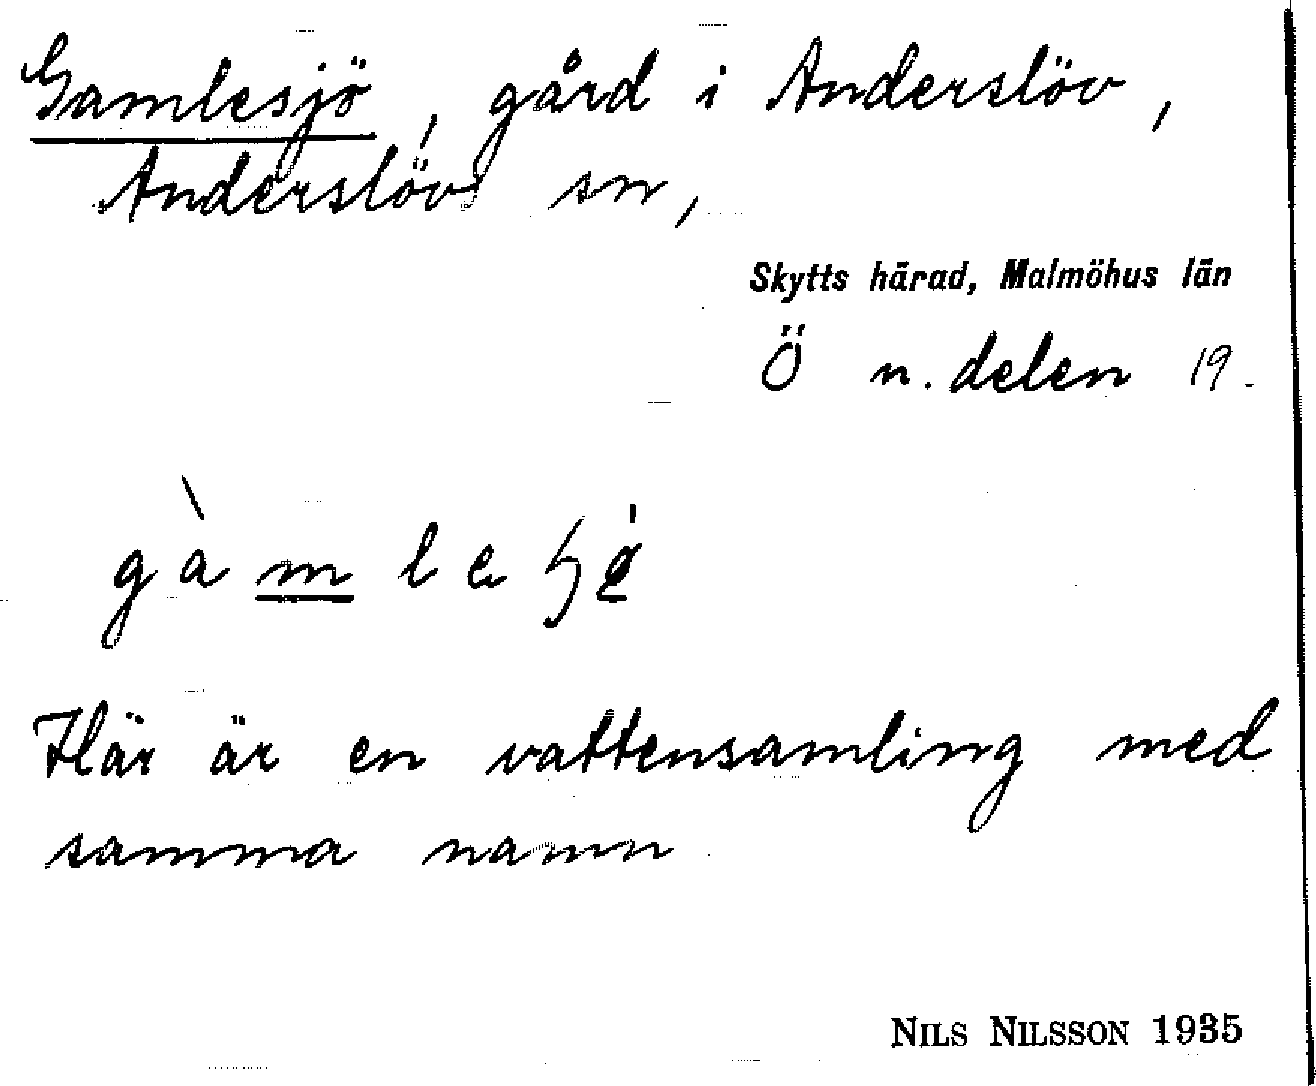 Gamlesjö, gård i Anderslöv,
Anderslövs sn,
Skytts härad, Malmöhus län
Ö n. delen 19.
Här är en vattensamling med
samma namn
NILS NILSSON 1935